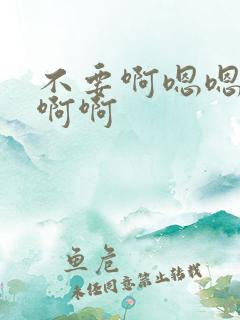 不要啊嗯嗯
啊啊
鱼危
未经同意禁止转载